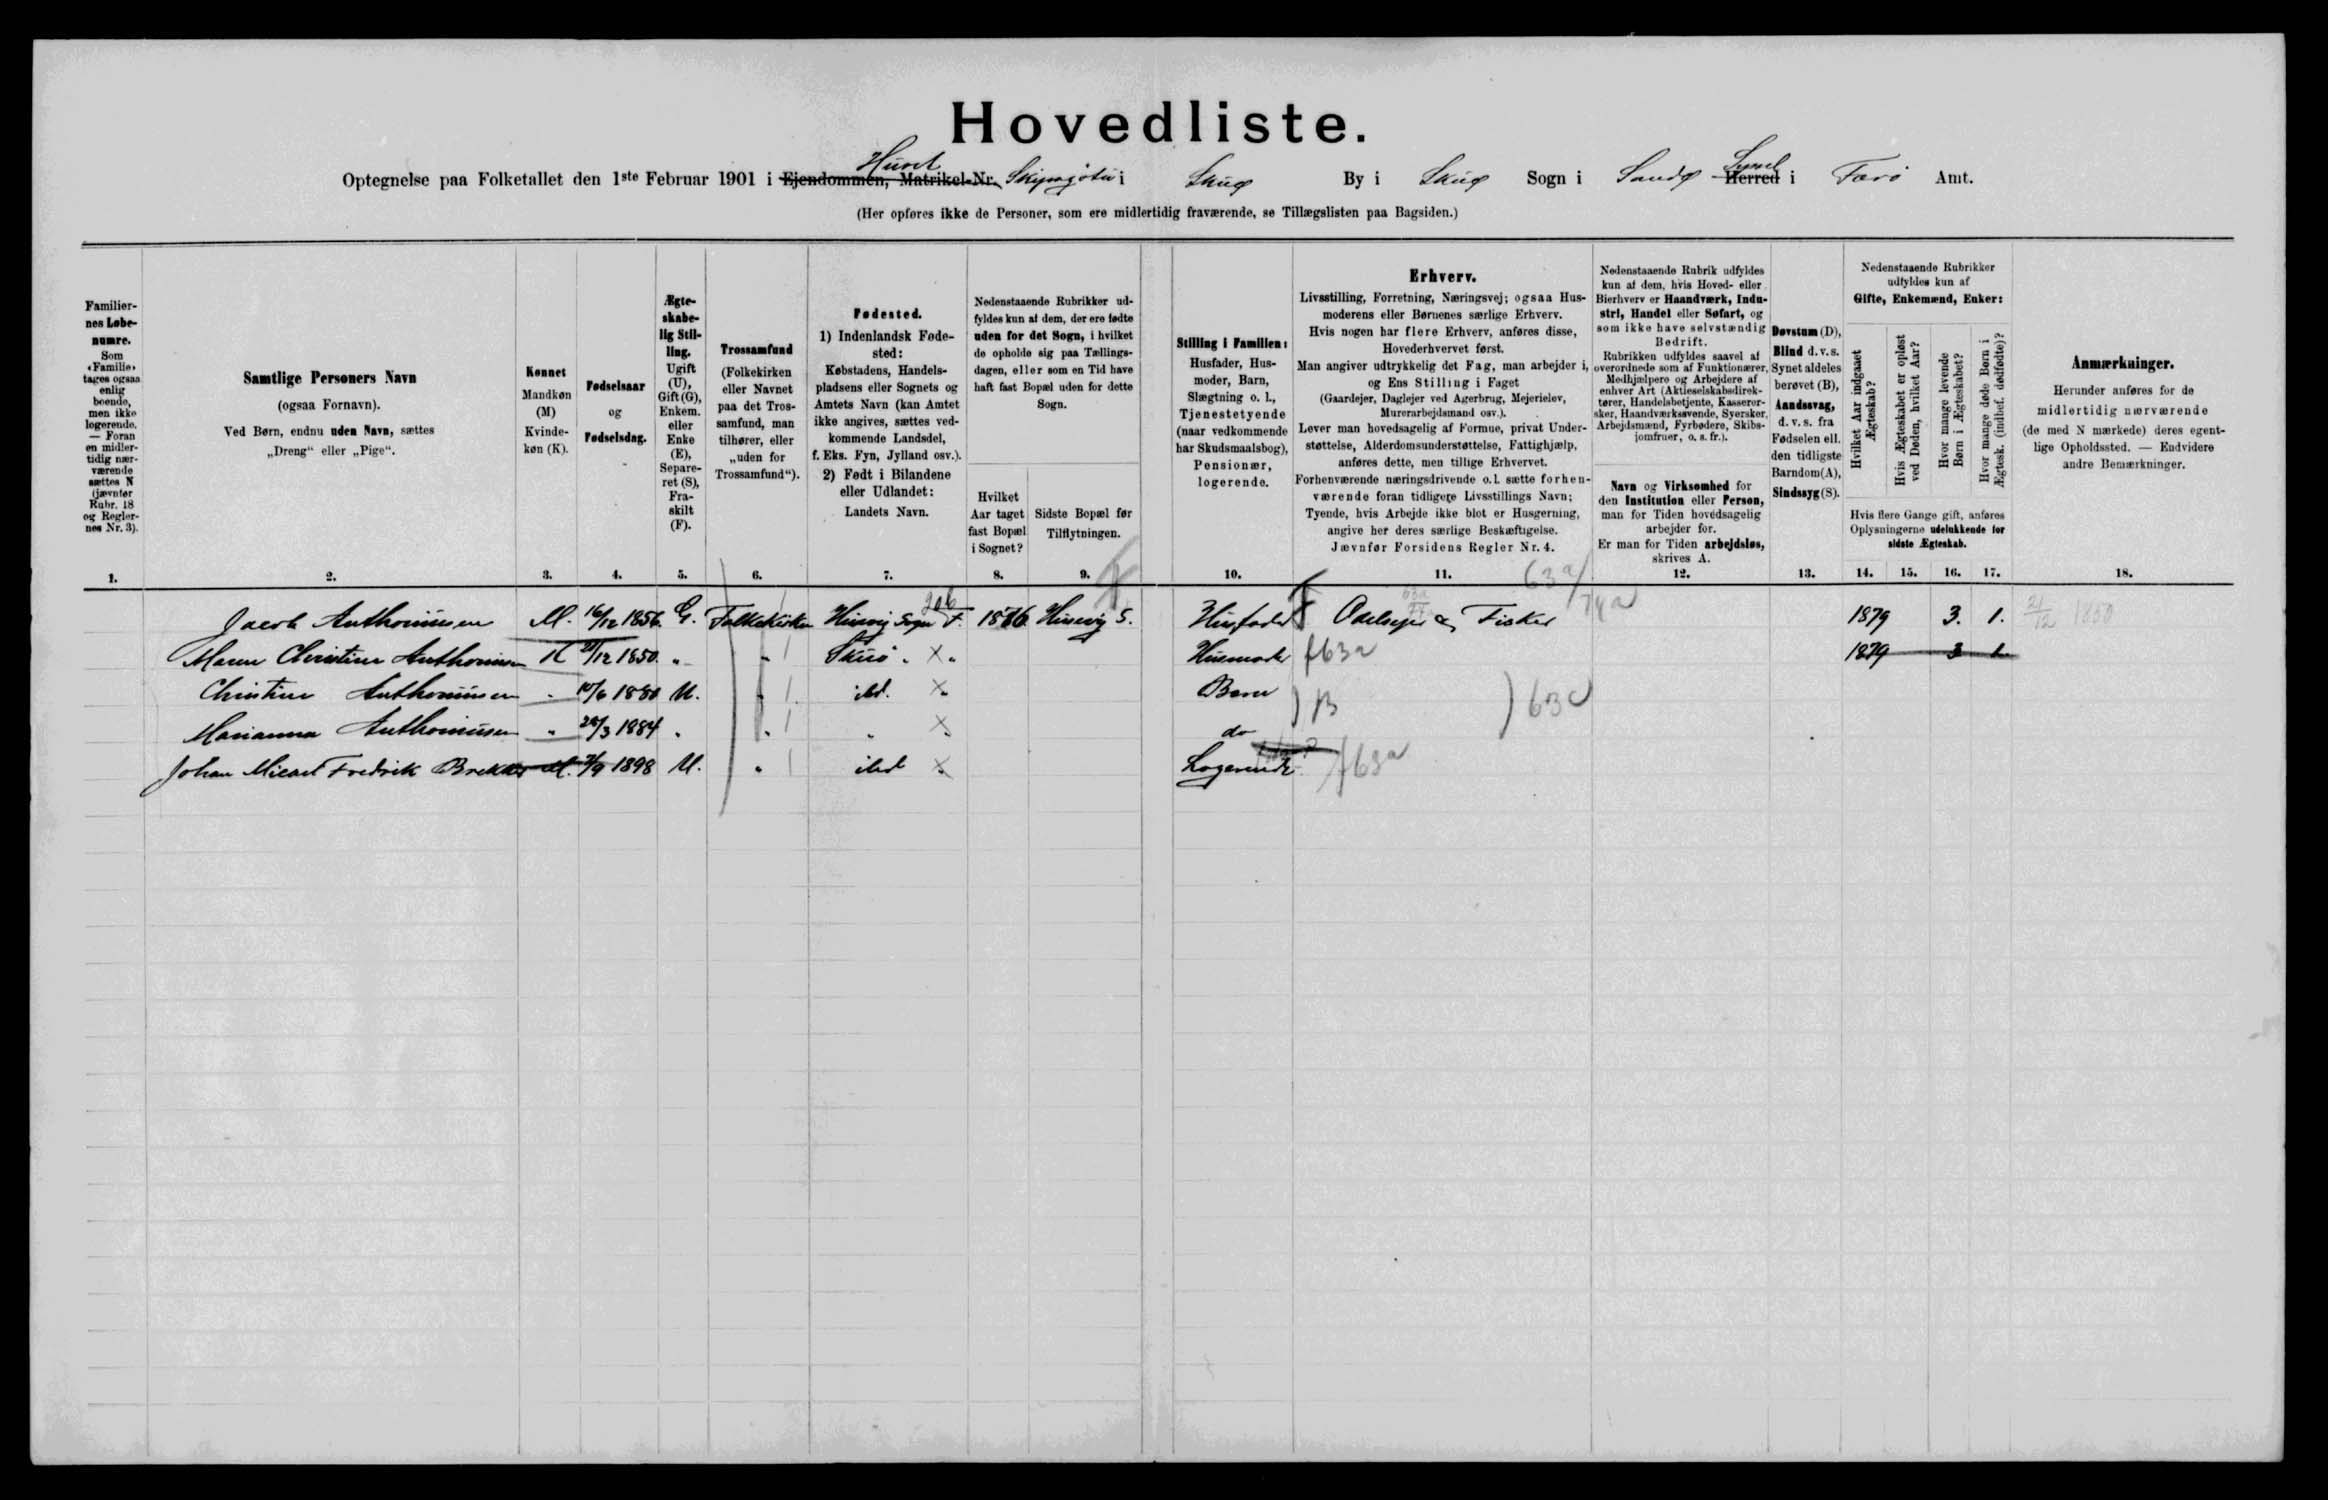 Hovedliste.
Optegnelse paa Folketallet den 1ste Februar 1901 i Ejendommen, Matrikel-Nr. Huset i Skuø By i Skuø Sogn i Sandø Herred Syssel i Færø Amt.
(Her opføres ikke de Personer, som ere midlertidig fraværende, se Tillægslisten paa Bagsiden.)
Familiernes Løbenumre. Som «Familie» tages ogsaa enlig boende, men ikke logerende. — Foran en midlertidig nærværende sættes N (jævnfør Rubr. 18 og Reglernes Nr. 3).
Samtlige Personers Navn (ogsaa Fornavn). Ved Børn, endnu uden Navn, sættes „Dreng“ eller „Pige“.
Kønnet Mandkøn (M) Kvindekøn (K).
Fødselsaar og Fødselsdag.
Ægteskabelig Stilling. Ugift (U), Gift (G), Enkem. eller Enke (E), Separeret (S), Fraskilt (F).
Trossamfund (Folkekirken eller Navnet paa det Trossamfund, man tilhører, eller „uden for Trossamfund“).
Fødested. 1) Indenlandsk Fødested: Købstadens, Handelspladsens eller Sognets og Amtets Navn (kan Amtet ikke angives, sættes vedkommende Landsdel, f. Eks. Fyn, Jylland osv.). 2) Født i Bilandene eller Udlandet: Landets Navn.
Nedenstaaende Rubrikker udfyldes kun af dem, der ere fødte uden for det Sogn, i hvilket de opholde sig paa Tællingsdagen, eller som en Tid have haft fast Bopæl uden for dette Sogn.
Hvilket Aar taget fast Bopæl i Sognet?
Sidste Bopæl før Tilflytningen.
Stilling i Familien: Husfader, Husmoder, Barn, Slægtning o. l., Tjenestetyende (naar vedkommende har Skudsmaalsbog), Pensionær, logerende.
Erhverv.
Livsstilling, Forretning, Næringsvej; ogsaa Husmoderens eller Børnenes særlige Erhverv.
Hvis nogen har flere Erhverv, anføres disse, Hovederhvervet først.
Man angiver udtrykkelig det Fag, man arbejder i, og Ens Stilling i Faget
(Gaardejer, Daglejer ved Agerbrug, Mejerielev, Murerarbejdsmand osv.).
Lever man hovedsagelig af Formue, privat Understøttelse, Alderdomsunderstøttelse, Fattighjælp, anføres dette, men tillige Erhvervet.
Forhenværende næringsdrivende o.l. sætte forhenværende foran tidligere Livsstillings Navn;
Tyende, hvis Arbejde ikke blot er Husgerning, angive her deres særlige Beskæftigelse.
Jævnfør Forsidens Regler Nr. 4.
Nedenstaaende Rubrik udfyldes kun af dem, hvis Hoved- eller Bierhverv er Haandværk, Industri, Handel eller Søfart, og som ikke have selvstændig Bedrift.
Rubrikken udfyldes saavel af overordnede som af Funktionærer, Medhjælpere og Arbejdere af enhver Art (Aktieselskabsdirektører, Handelsbetjente, Kasserersker, Haandværkssvende, Syersker, Arbejdsmænd, Fyrbødere, Skibsjomfruer, o. s. fr.).
Navn og Virksomhed for den Institution eller Person, man for Tiden hovedsagelig arbejder for.
Er man for Tiden arbejdsløs, skrives A.
Døvstum (D), Blind d. v. s. Synet aldeles berøvet (B), Aandssvag, d. v. s. fra Fødselen ell. den tidligste Barndom (A), Sindssyg (S).
Nedenstaaende Rubrikker udfyldes kun af Gifte, Enkemænd, Enker:
Hvilket Aar indgaaet Ægteskab?
Hvis Ægteskabet er opløst ved Døden, hvilket Aar?
Hvor mange levende Børn i Ægteskabet?
Hvor mange døde Børn i Ægtesk. (indbef. dødfødte)?
Hvis flere Gange gift, anføres Oplysningerne udelukkende for sidste Ægteskab.
Anmærkninger.
Herunder anføres for de midlertidig nærværende (de med N mærkede) deres egentlige Opholdssted. — Endvidere andre Bemærkninger.
1. 2. 3. 4. 5. 6. 7. 8. 9. 10. 11. 12. 13. 14. 15. 16. 17. 18.
Jacob Anthoniusen M. 16/12 1856. G. Folkekirken Husevig Sogn F. 1876 Husevig S. Husfader Odelsejer & Fisker 63a 74a 1879 3. 1. 21/12 1850
Maren Christine Anthoniusen K 21/12 1850. " " Skuø " X " Husmoder f63a 1879 3 1
Christine Anthoniusen " 10/6 1880 U. " ibd. X Barn B 63c
Marianna Anthoniusen " 28/3 1884 " " " X do
Johan Micael Fredrik Brekke M. 7/9 1898 U. " ibd X Logerende f63a